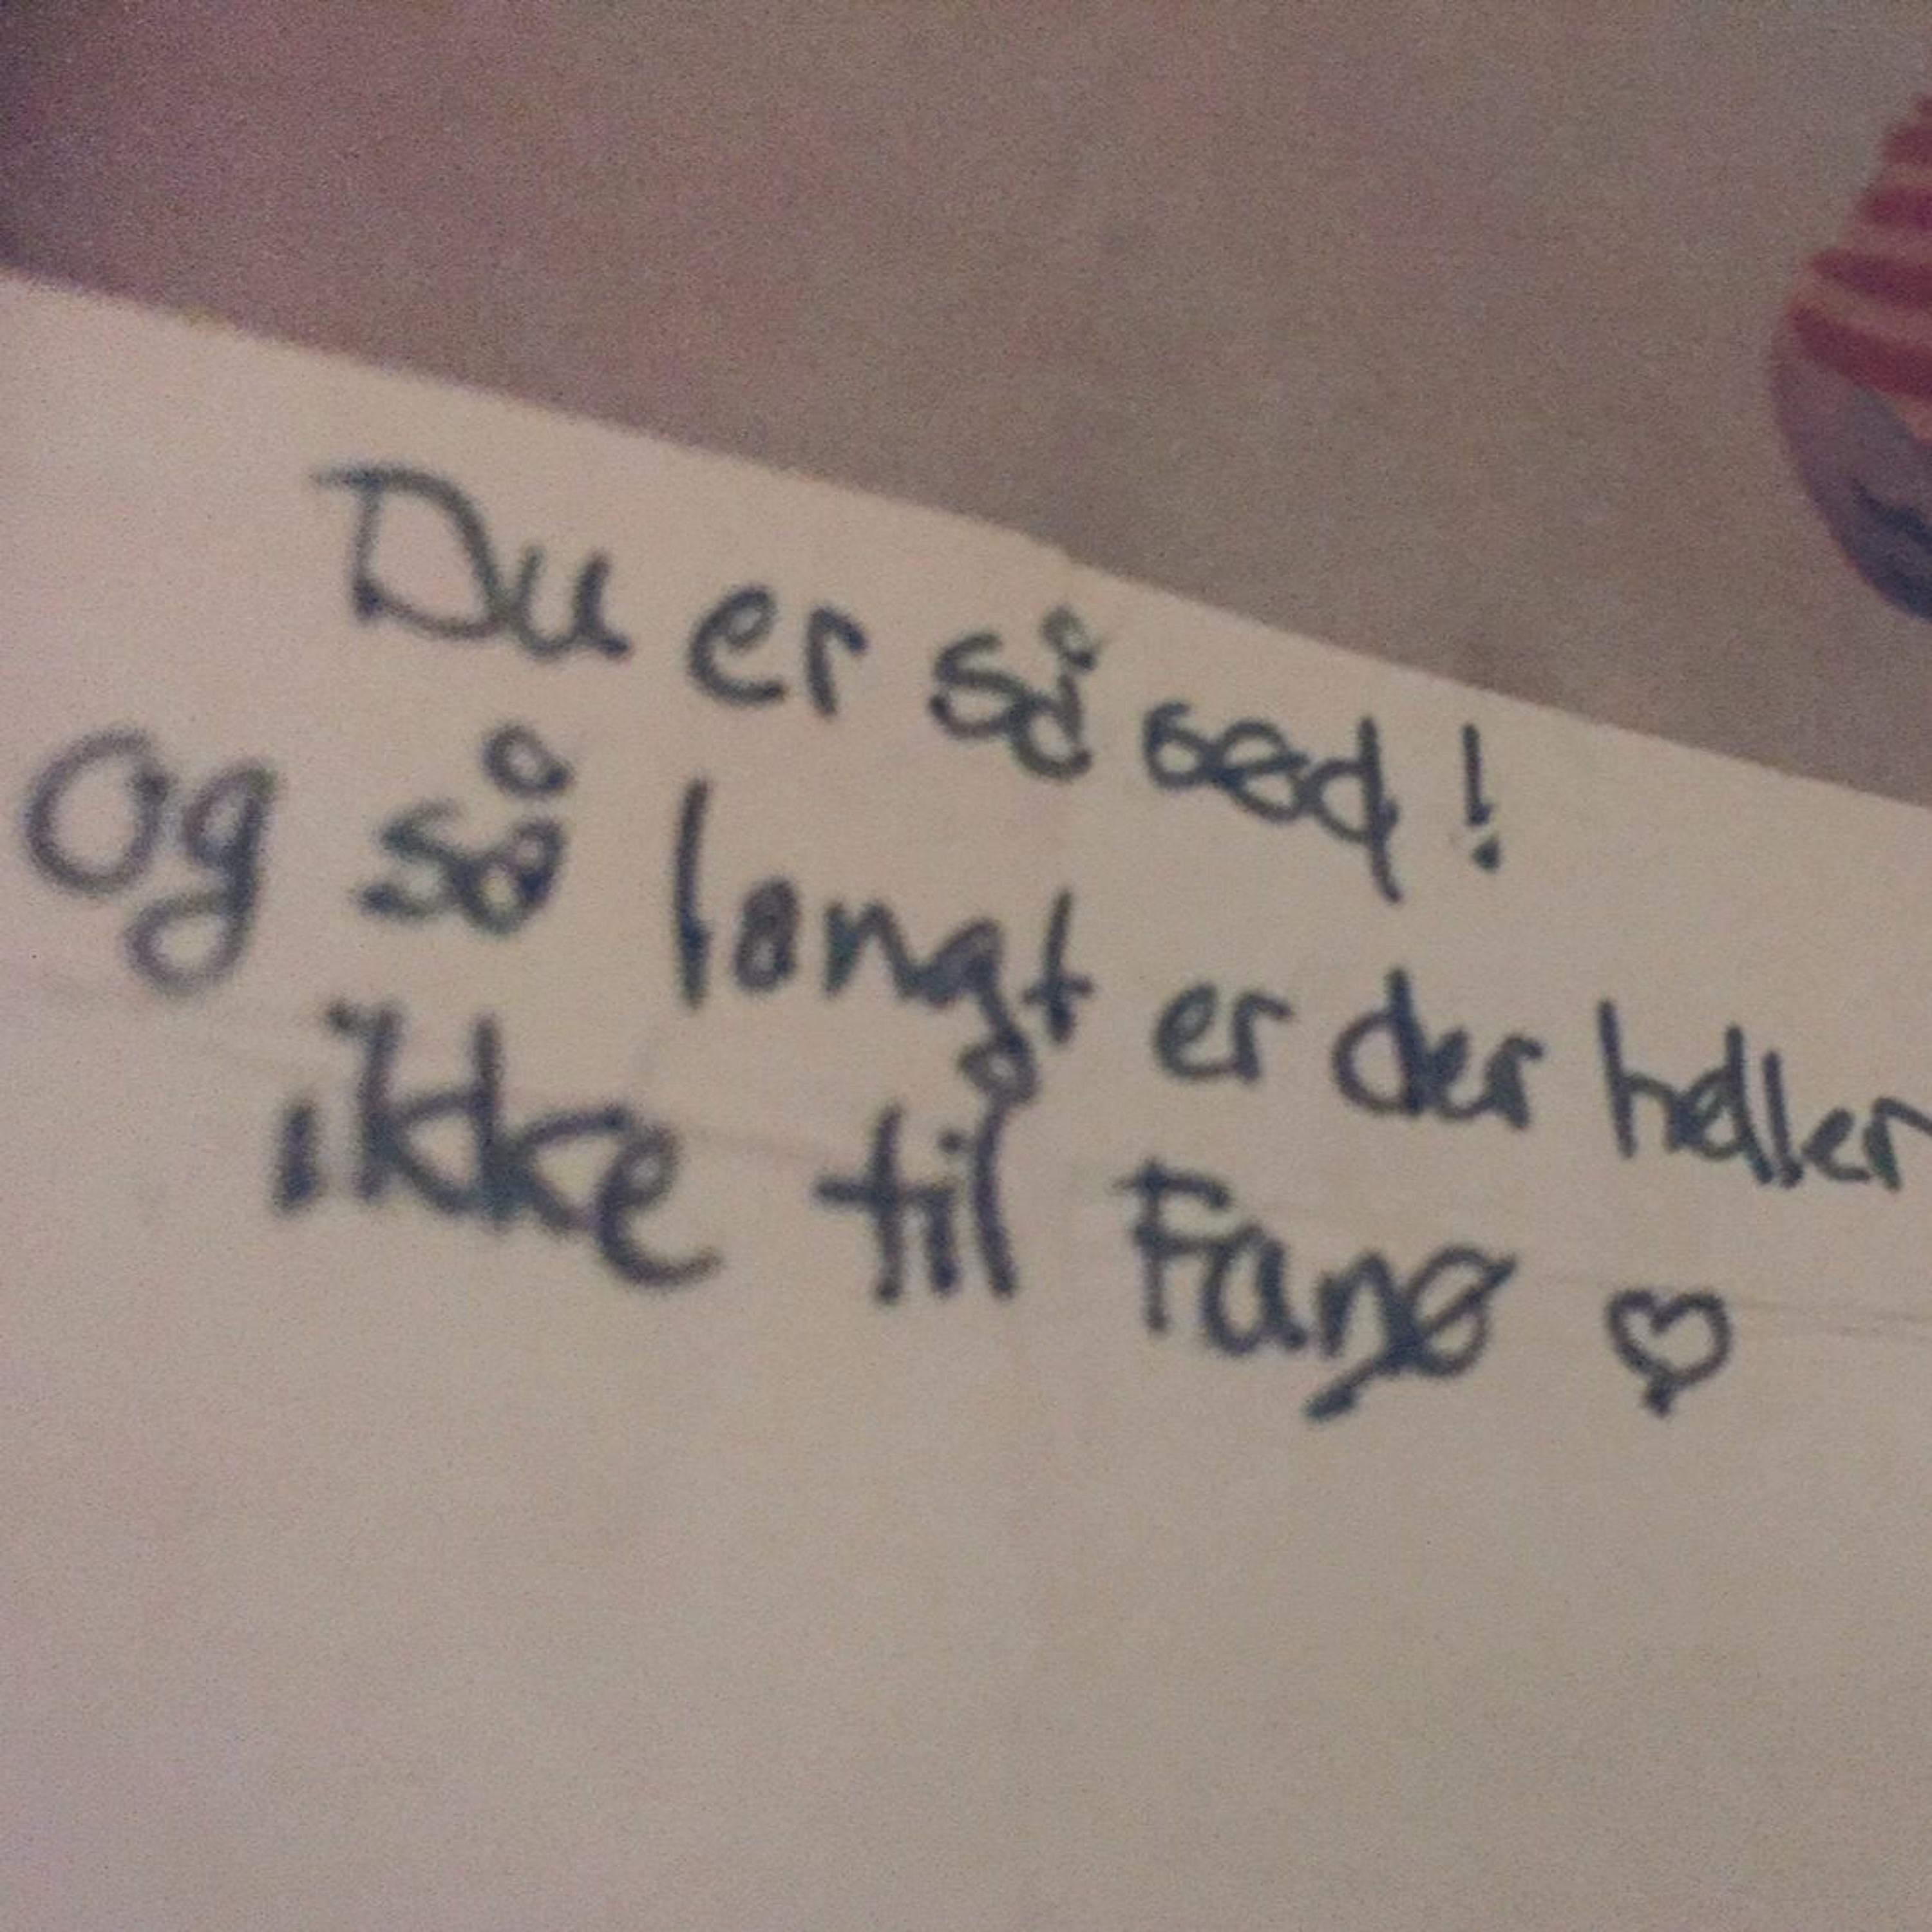 Du er så sød!
Og så langt er der heller
ikke til Fanø ♡